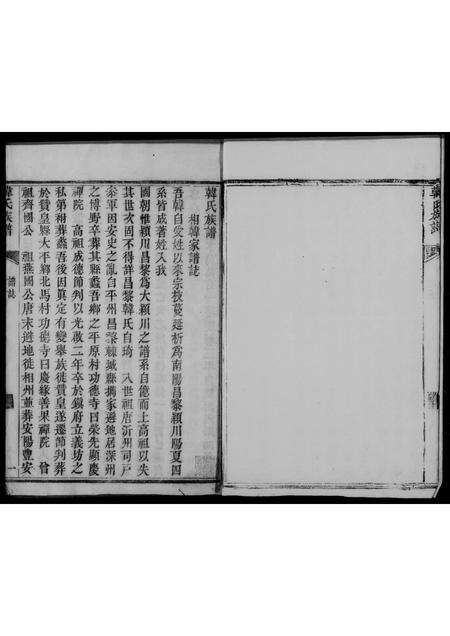 韓氏族譜
韓氏族譜
相韓家譜誌
吾韓自受姓以來宗枝蔓延析為南陽昌黎潁川陽夏四
系皆成著姓入我
國朝惟潁川昌黎為大潁川之譜系自億而上高祖以失
其世次固不得詳昌黎韓氏自琦 八世祖唐沂州司戶
參軍因安史之亂自平州昌黎棘城縣攜家避地居深州
之博野卒葬其縣蠡吾鄉之平原村功德寺曰榮先顯慶
禪院 高祖成德節判以光啟二年卒於鎮府立義坊之
私第祔葬蠡吾後因真定有變舉族徒贊皇遂遷節判葬
於贊皇縣太平鄉北馬村功德寺曰慶緣善果禪院 曾
祖齊國公 祖燕國公唐末避地徒相州並葬安陽豐安
韓氏族譜
譜誌
一